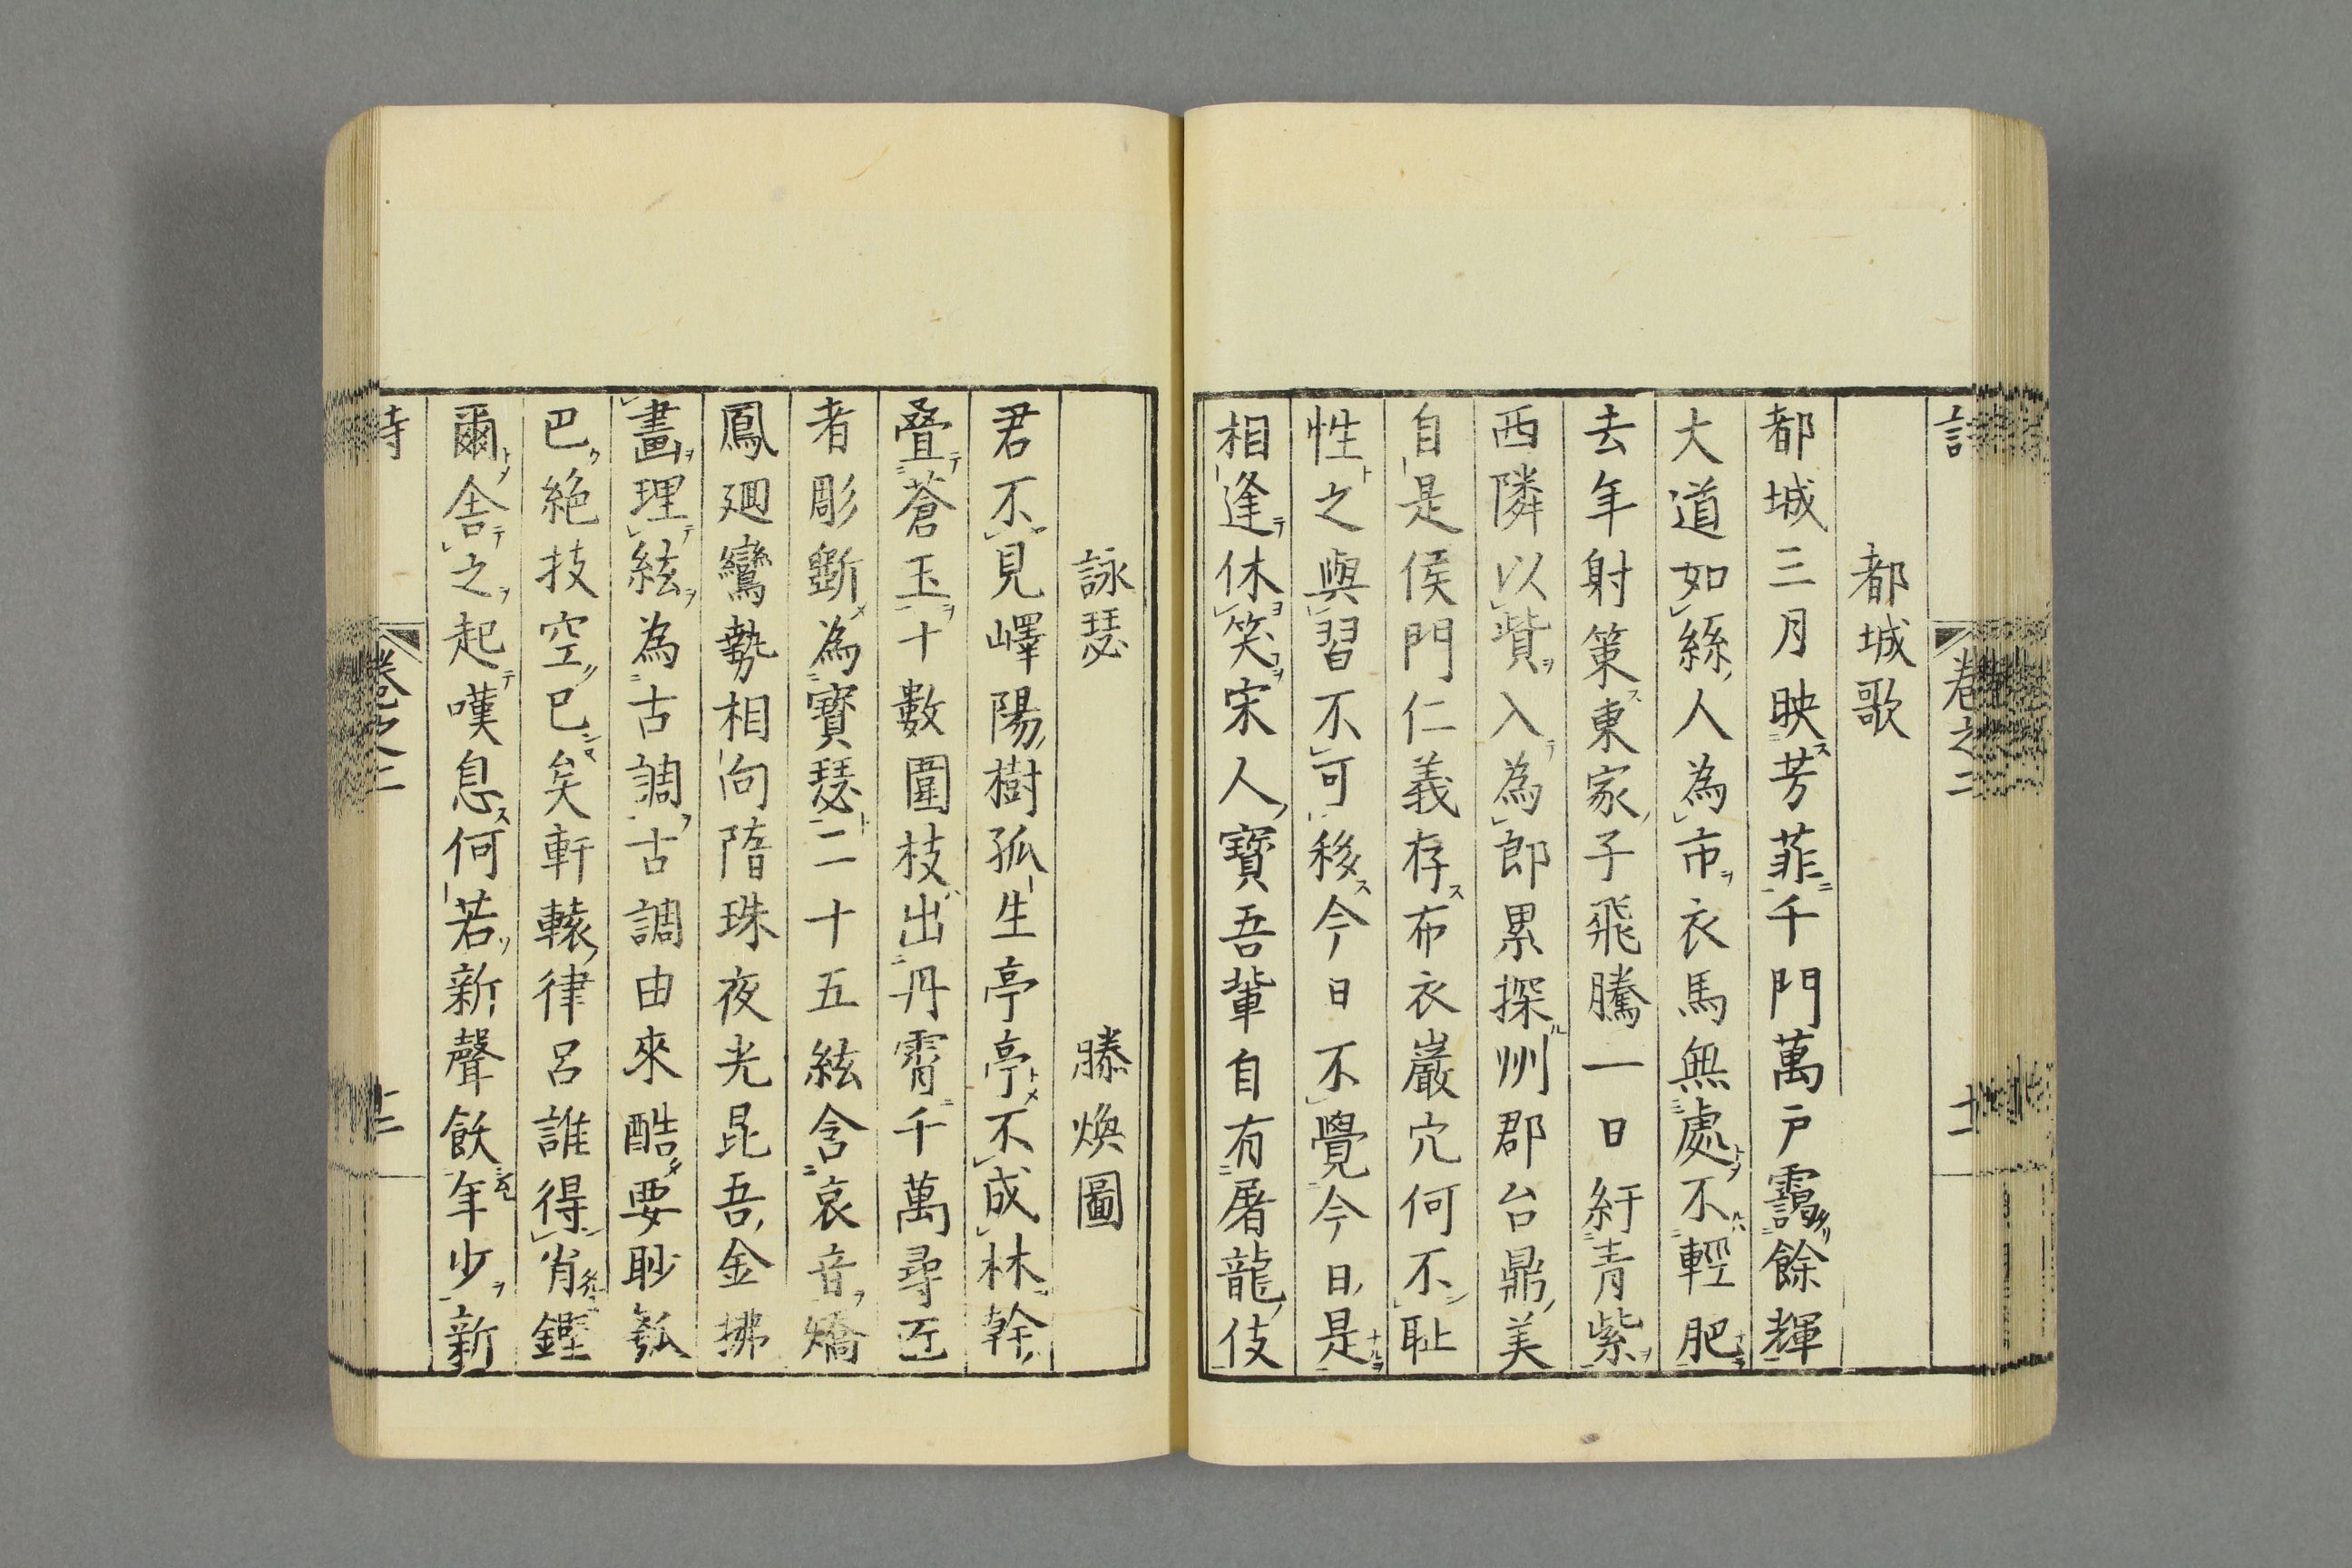 卷之二
十一
都城歌
都城三月映芳菲千門萬戸靄餘輝
大道如絲人為市衣馬無處不輕肥
去年射策東家子飛騰一日紆青紫
西隣以貲入為郎累探州郡台鼎美
自是侯門仁義存布衣巖穴何不耻
性之與習不可移今日不覺今日是
相逢休笑宋人寶吾輩自有屠龍伎
詠瑟　滕煥圖
君不見嶧陽樹孤生亭亭不成林幹
疊蒼玉十數圍枝出丹霄千萬尋匠
者彫斲為寶瑟二十五絃含哀音矯
鳳廻鸞勢相向隋珠夜光昆吾金拂
畫理絃為古調古調由來酷要眇瓠
巴絶技空已矣軒轅律呂誰得肖鏗
爾舎之起嘆息何若新聲飫年少新
卷之二
十二